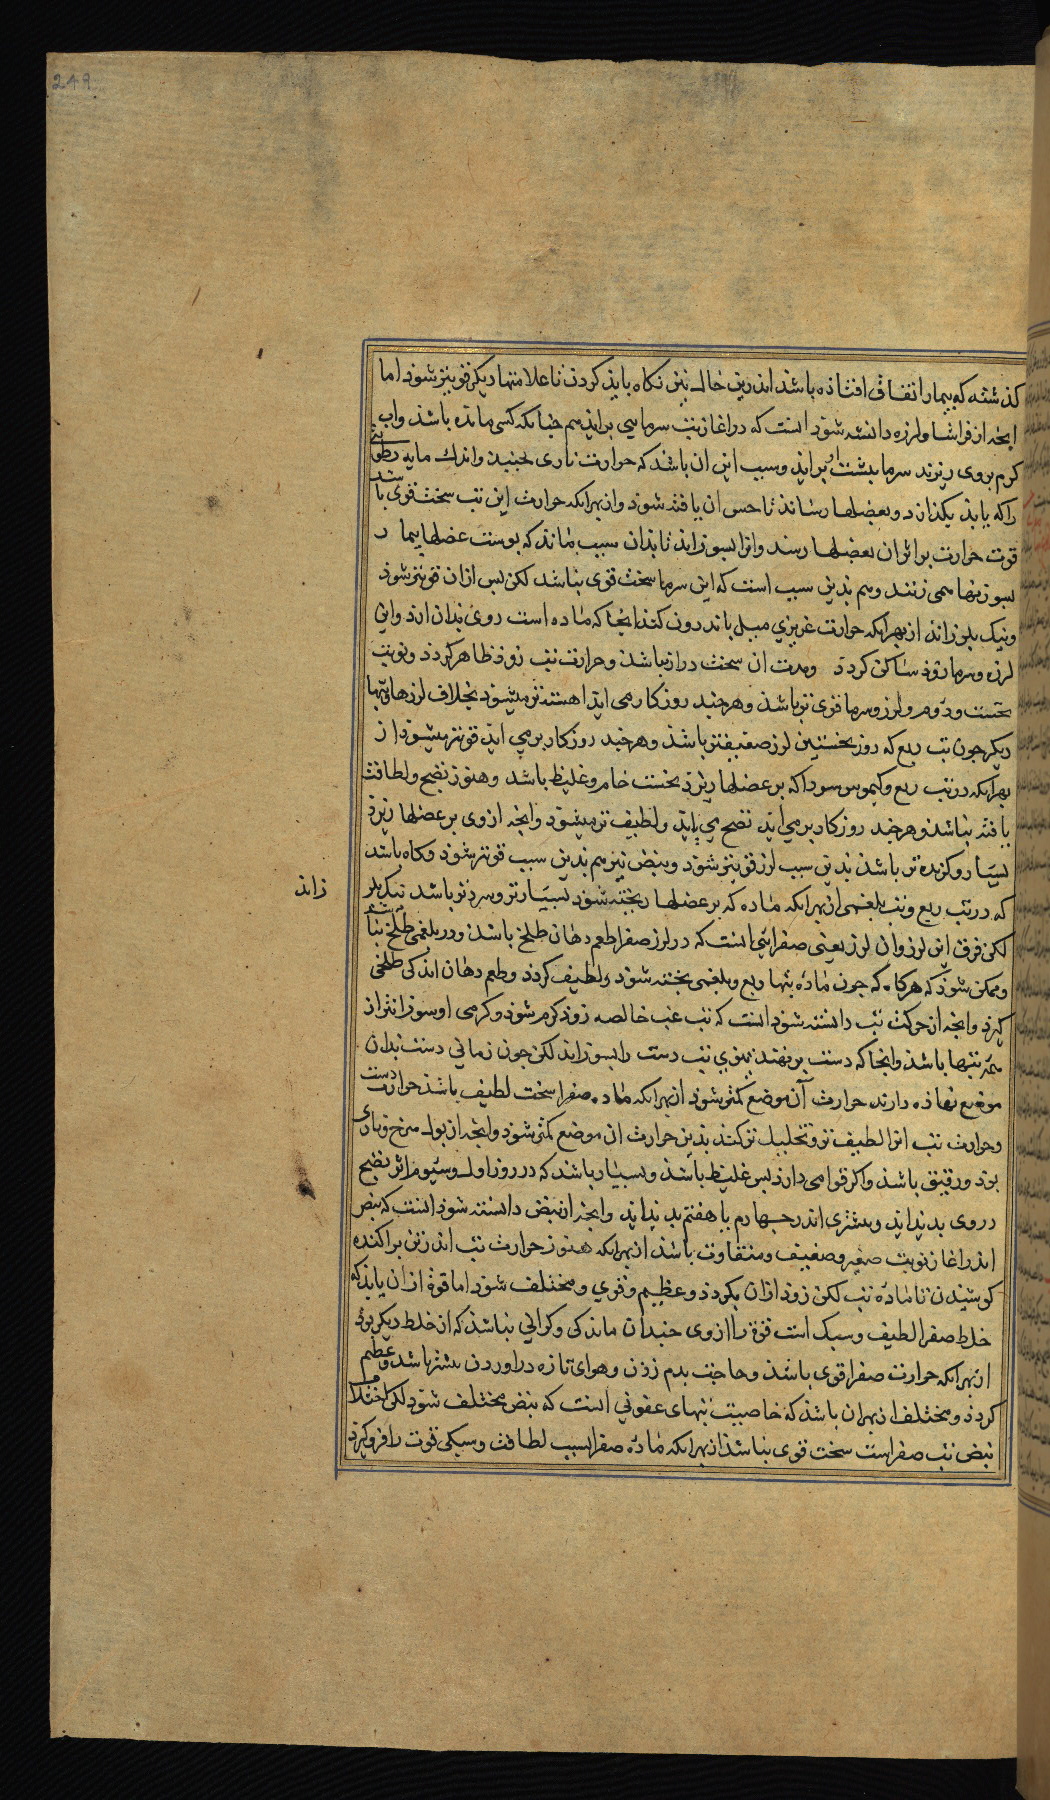 249
کذشته که بیمار اتفاق افتاذه باشذ اندرین حال نیز نکاه بایذ کردن تا علامتها دیکر قویتر شوذ اما
انجه از فراشا و لرزه دانسته شوذ انست که در اغاز تب سرمایی برایذ هم جنانکه کسی مانده باشذ واب
کرم بروی ریزند سرما بشت او برایذ وسبب این ان باشذ که حرارت ناری بجنبد واندک مایه رطوبتی
را که یابذ بکذارد وبعضلها رساند تا حس ان یافته شوذ وازبهرانکه حرارت این تب سخت قوی باشد
قوت حرارت بر اثر ان بعضلها رسد وانرا بسوزاند تا بدان سبب ماند که بوست عضلها بیمار
بسوزنها همی زنند وهم بدین سبب است که این سرما سخت قوی نباشد لکن بس ازان قویتر شوذ
ونیک بلرزاند ازبهرانکه حرارت غریزی میل باندرون کند انجا که ماده است روی بدان ارد واین
لرزه وسرما زوذ ساکن کردد ومدت ان سخت دراز نباشد وحرارت تب زوذ ظاهر کردد ونوبت
نخست ودوم ولرز وسرما قوی تر باشد وهرجند روزکار می ایذ اهسته تر میشوذ بخلاف لرزهای تبها
دیکر جون تب ربع که روز نخستین لرز ضعیفتر باشذ وهرجند روزکار برمی ایذ قویتر میشوذ از
بهرانکه در تب ربع وکیموس سودا که بر عضلها ریزد نخست خام وغلیظ باشد وهنوز نضج ولطافت
یافته نباشذ وهرجند روزکار برمی ایذ نضج می یابد ولطیف تر میشوذ وانجه ازوی بر عضلها ریزد
بسیار وکزنده تر باشذ بدین سبب لرز قویتر شوذ ونبض نیز هم بدین سبب قویتر شوذ وکاه باشد
که در تب ربع وتب بلغمی ازبهرانکه ماده که بر عضلها ریخته شوذ بسیارتر وسردتر باشد نیک بلر
زاند
لکن فرق این لرز وان لرز یعنی صفرایی انست که در لرز صفرا طعم دهان طلخ باشذ ودر بلغمی طلخ نباشد
وممکن شوذ که هرکاه که جون ماده تبها ربع وبلغمی بخته شوذ ولطیف کردد وطعم دهان اندکی طلخی
کیرد وانجه از حرکت تب دانسته شوذ انست که تب غب خالصه زوذ کرم شوذ وکرمی او سوزانتر از
همه تبها باشذ وانجا که دست برنهند بنوی تب دست را بسوزاند لکن جون زمانی دست بدان
موضع نهاذه دارند حرارت آن موضع کمتر شوذ ازبهرانکه ماده صفرا سخت لطیف باشذ حرارت دست
وحرارت تب انرا لطیف تر وتحلیل تر کند بدین حرارت ان موضع کمتر شوذ وانجه از بول سرخ وناری
بوذ ورقیق باشذ واکر قوامی دارد بس غلیظ باشذ وبسیار باشد که در روز اول وسیوم اثر نضج
در وی بدید اید وبیشتری اندر جهارم یا هفتم بدید اید وانجه از نبض دانسته شوذ انست که نبض
اندر اغاز نوبت صغیر وضعیف ومتفاوت باشذ ازبهرانکه هنوز حرارت تب اندر تن براکنده
کوشیدن با ماده تب لکن زوذ ازان بکردد وعظیم وقوی ومختلف شوذ اما قوة ازان یابذ که
خلط صفرا لطیف وسبک است قوة را ازوی جندان ماندکی وکرانی نباشذ که از خلط دیکر بوذ
ازبهرانکه حرارت صفرا قوی باشذ وحاجت بدم زذن وهوای تازه دراوردن بیشتر باشد وعظیم
کردد ومختلف ازبهران باشذ که خاصیت تبهای عفونی انست که نبض مختلف شوذ لکن اختلاف
نبض تب صفراست سخت قوی نباشذ ازبهرانکه ماده صفرا بسبب لطافت وسبکی قوت را فرو کیرد